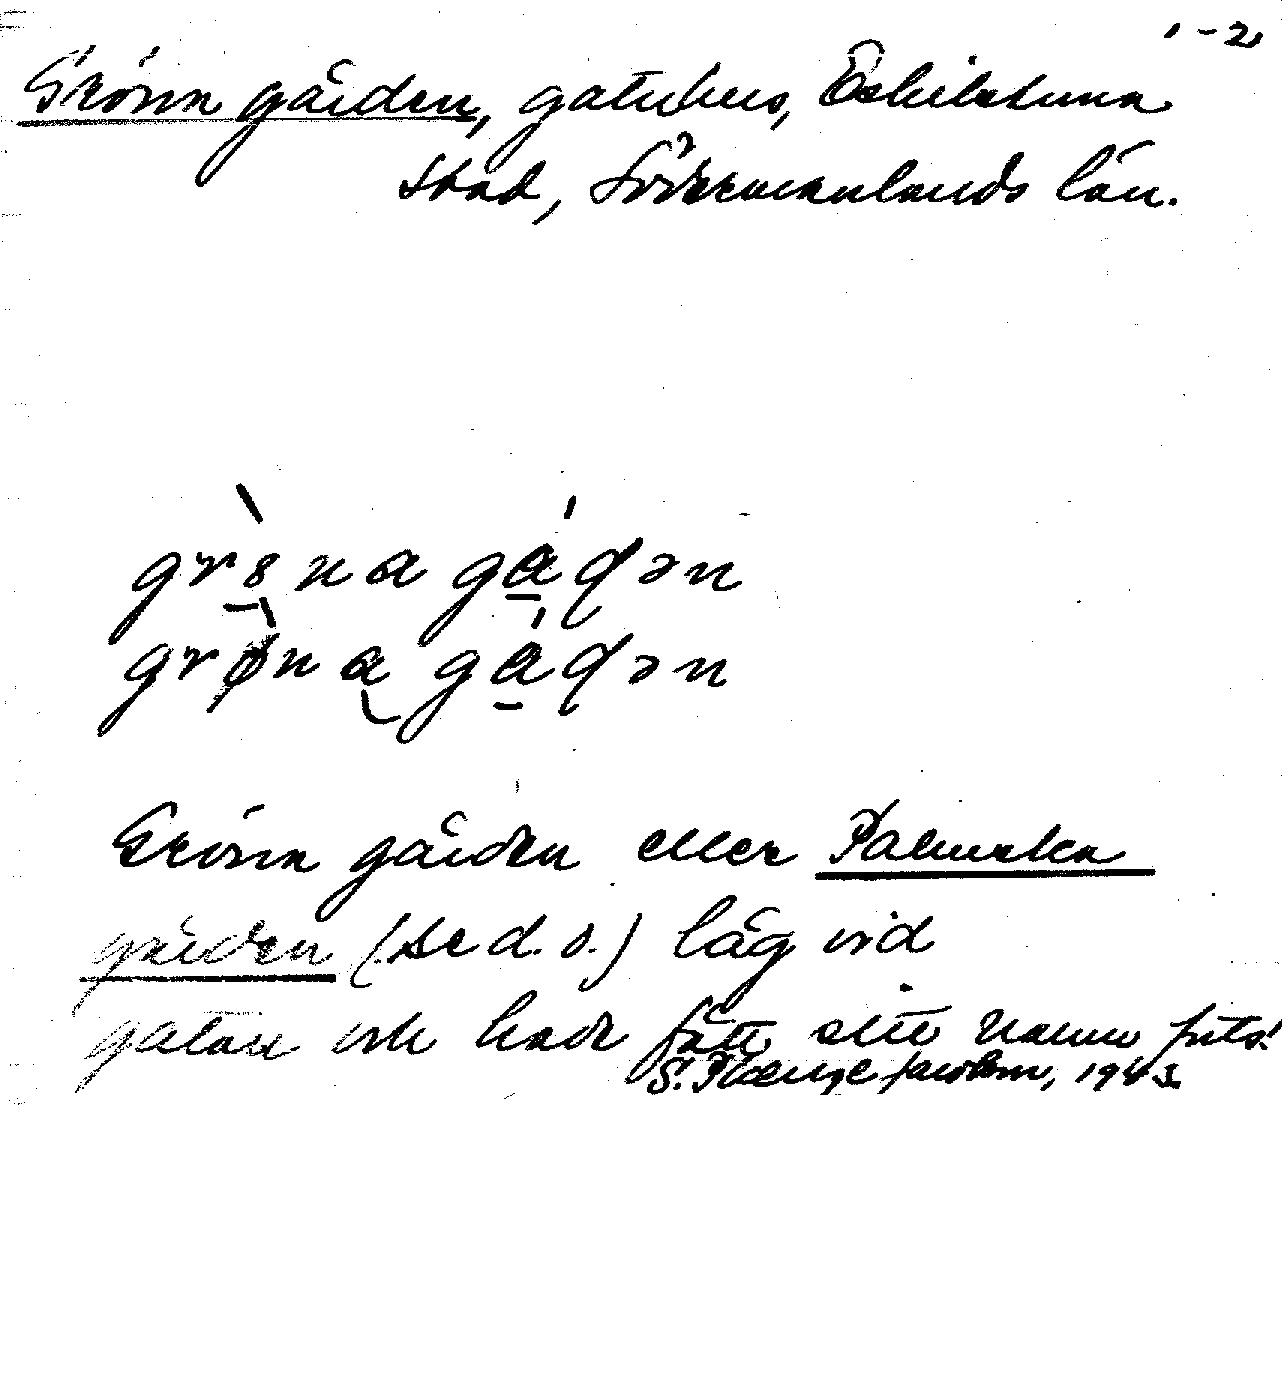 1-2
Gröna gården, gatuhus, Eskilstuna
stad, Södermanlands län.
grö̀na gádən
grø̀na gádən
Gröna gården eller Palmska
gården (se d.o.) låg vid
gatan och hade fått sitt namn
jacobson, 1943.